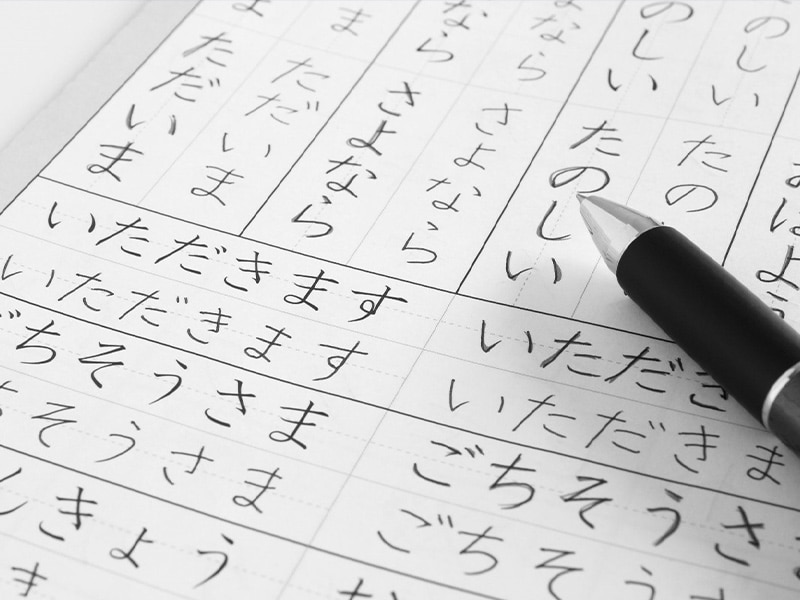 おはよう
のしい
たの
のしい
たのしい
なら
さよなら
なら
さよなら
ま
ただいま
ま
ただいま
いただきます
いただきます
ちそうさま
ちそうさま
きょう
き
いただき
いただきま
ごちそうさ
ごちそう